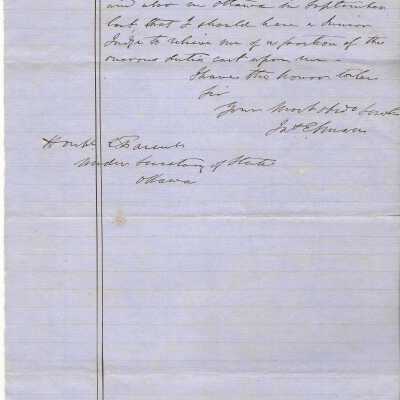 and also in Ottawa in September
last, that I should have a Junior
Judge to relieve me of a portion of the
onerous duties cast upon me.
I have the honor to be
Sir
Your Most Obdt Servt
Honble E Parent
Under Secretary of State
Ottawa